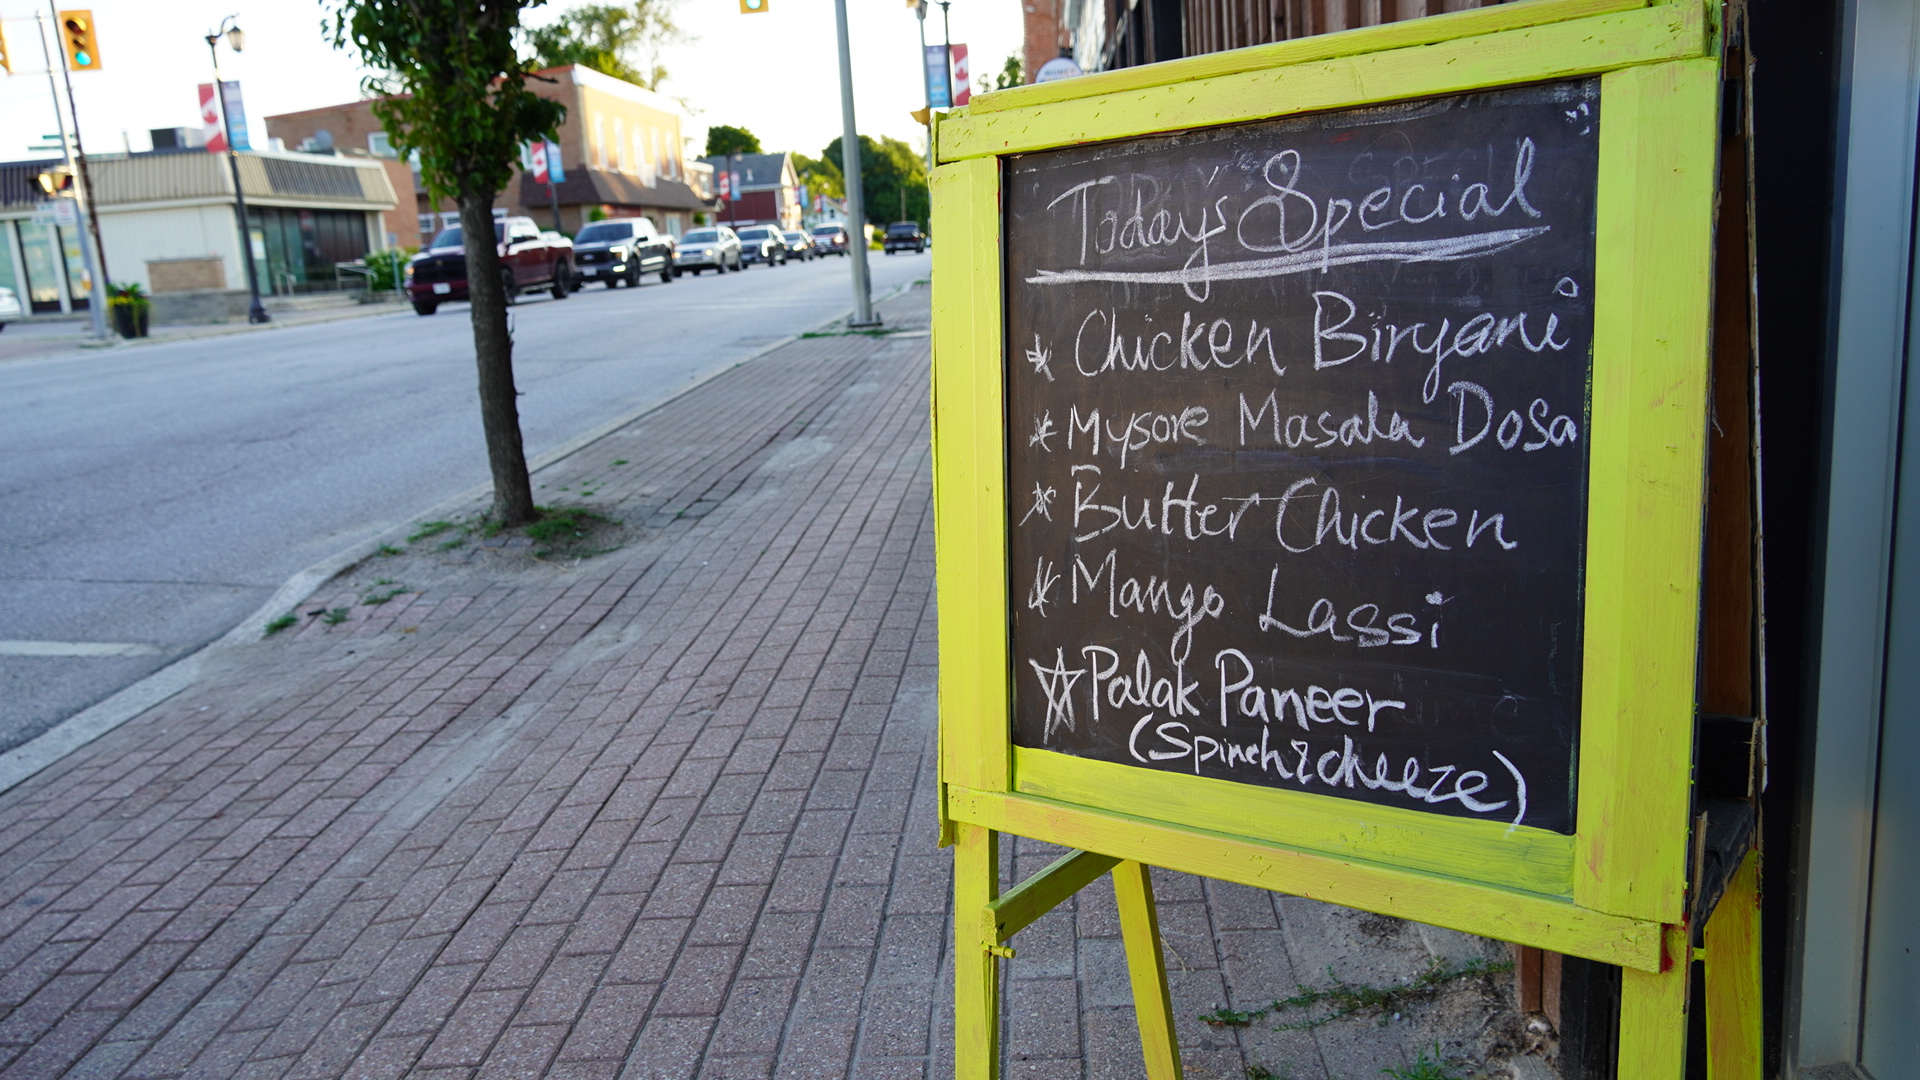 Today's Special
* Chicken Biryani
* Mysore Masala Dosa
* Butter Chicken
* Mango Lassi
☆ Palak Paneer
(Spinch & cheeze)